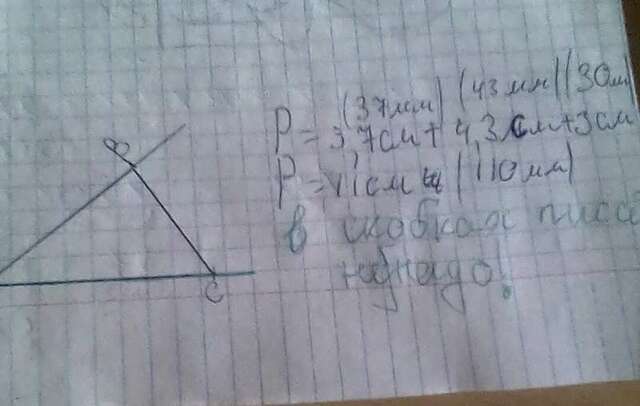 (37мм) (43мм) (30м)
P = 3,7см + 4,3см + 3см
P = 11см (110мм)
в скобках писа
не надо!
B
C